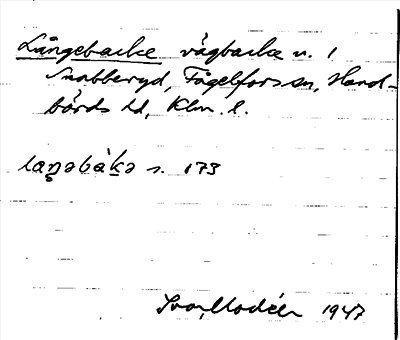 Långebacke vägbacke n. 1
Snabberyd, Fågelfors sn, Hand-
börds hd, Klm. l.
laŋəbàkə s. 173
Ivar Modéer 1947